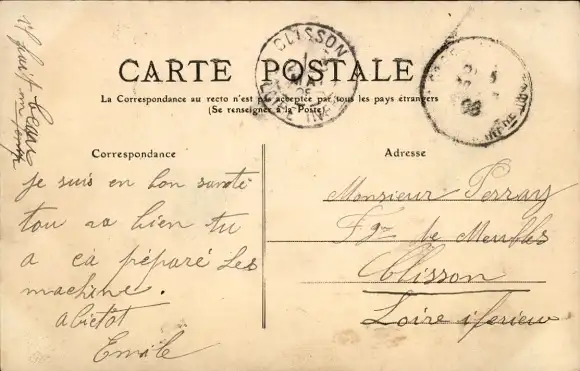 il fait beau
CLISSON
LOIRE INF
CARTE POSTALE
La Correspondance au recto n'est pas acceptée par tous les pays étrangers
(Se renseigner à la Poste)
Correspondance
je suis en bon santé
tou va bien tu
a ca péparé les
machine.
abietot
Emile
Adresse
Monsieur Perray
Fge de Meubles
Clisson
Loire iferieur